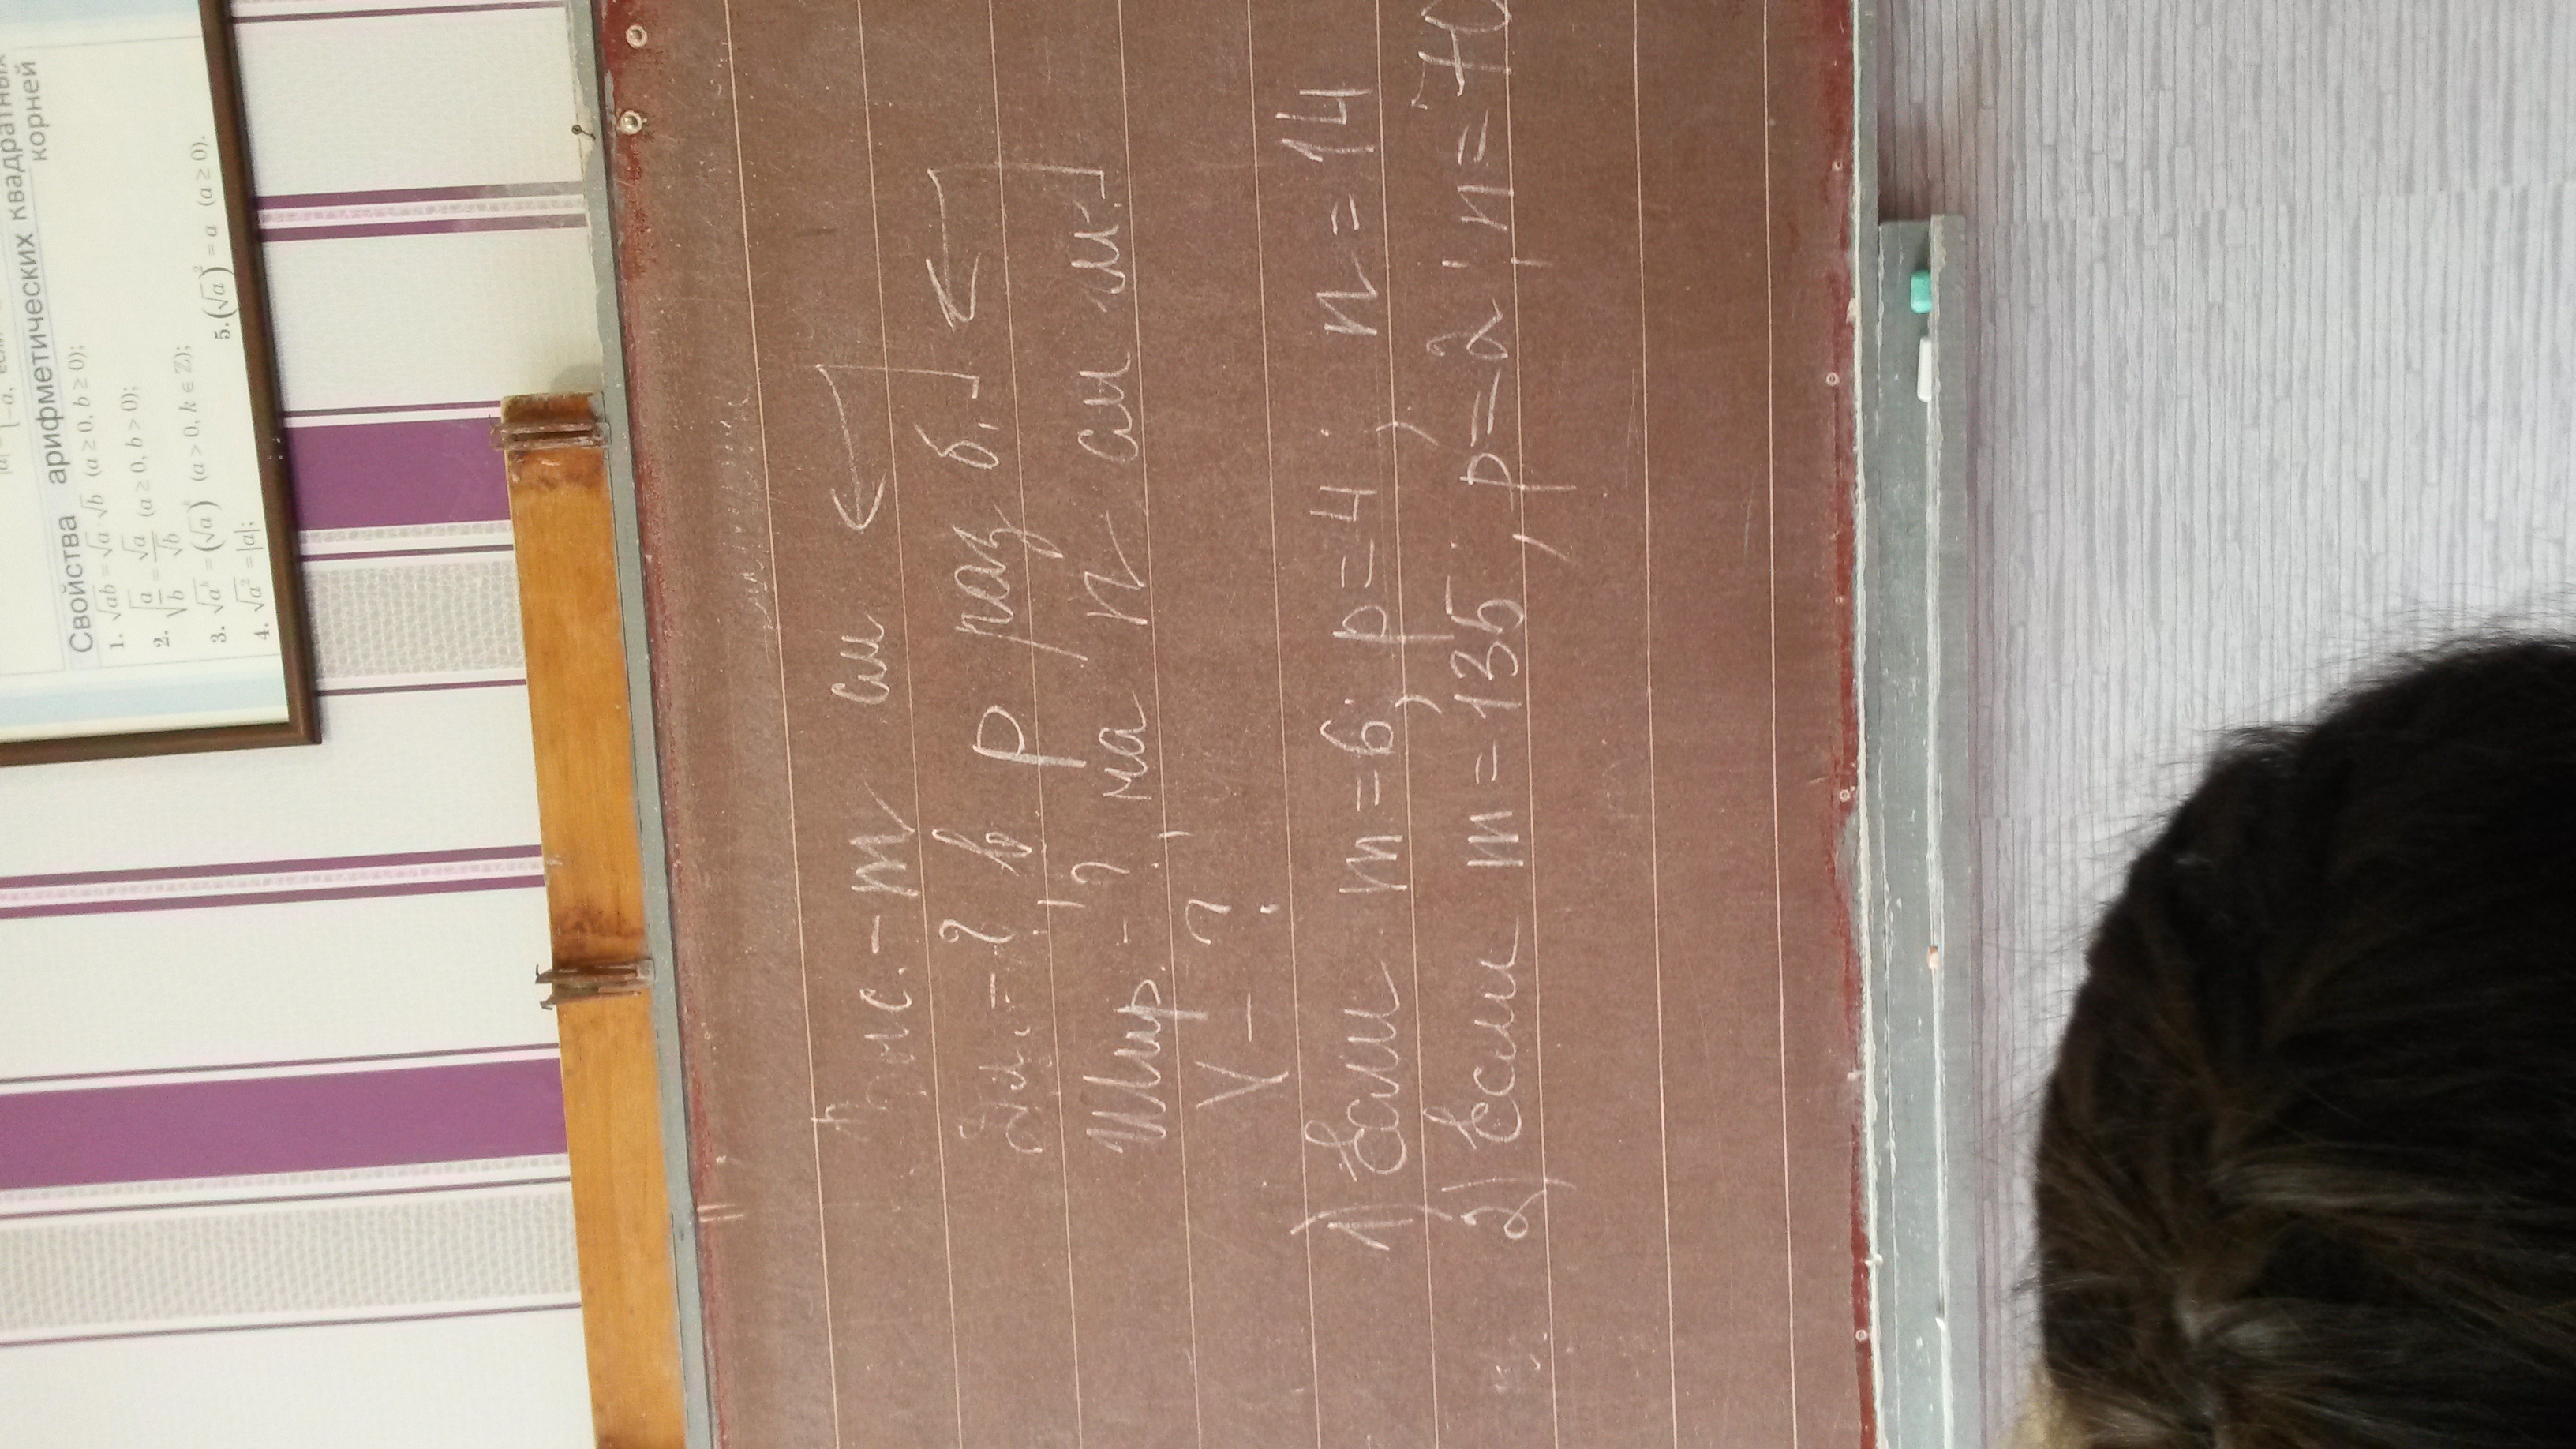 |a| = { -a,
Свойства арифметических квадратных корней
1. √ab = √a·√b (a ≥ 0, b ≥ 0);
2. √(a/b) = √a/√b (a ≥ 0, b > 0);
3. √aᵏ = (√a)ᵏ (a > 0, k ∈ Z);
4. √a² = |a|;
5. (√a)² = a (a ≥ 0).
Выс. - m см
Дл. - ? в p раз б.
Шир. - ?, на n см м.
V - ?
1) Если m = 6; p = 4; n = 14
2) Если m = 135; p = 2; n = 70